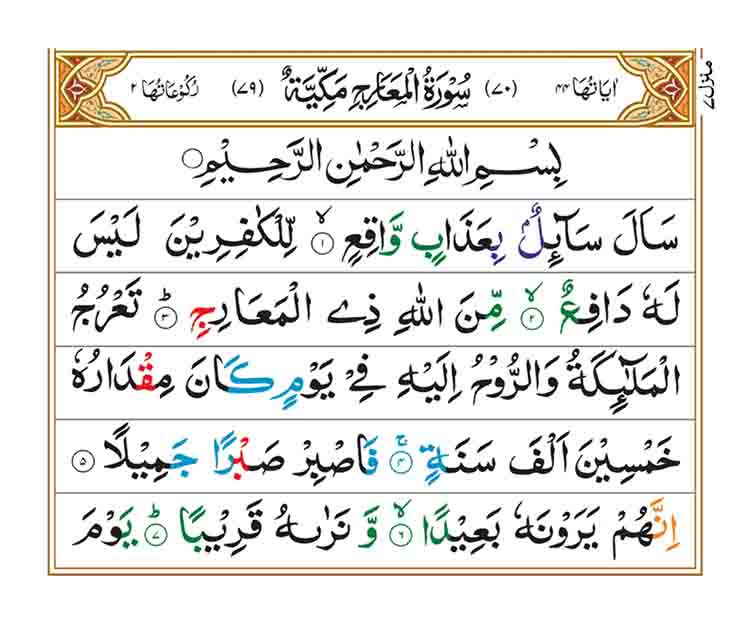 اٰيَاتُهَا ٤٤ (٧٠) سُوْرَةُ الْمَعَارِجِ مَكِّيَّةٌ (٧٩) رُكُوْعَاتُهَا ٢
منزل ٧
بِسْمِ اللهِ الرَّحْمٰنِ الرَّحِيْمِ ○
سَاَلَ سَآئِلٌۢ بِعَذَابٍ وَّاقِعٍ ۙ‏ ١ لِّلْكٰفِرِيْنَ لَيْسَ
لَهٗ دَافِعٌ ۙ ٢ مِّنَ اللهِ ذِى الْمَعَارِجِ ؕ ٣ تَعْرُجُ
الْمَلٰٓئِكَةُ وَالرُّوْحُ اِلَيْهِ فِيْ يَوْمٍ كَانَ مِقْدَارُهٗ
خَمْسِيْنَ اَلْفَ سَنَةٍ ۚ ٤ فَاصْبِرْ صَبْرًا جَمِيْلًا ٥
اِنَّهُمْ يَرَوْنَهٗ بَعِيْدًا ۙ ٦ وَّ نَرٰىهُ قَرِيْبًا ؕ ٧ يَوْمَ